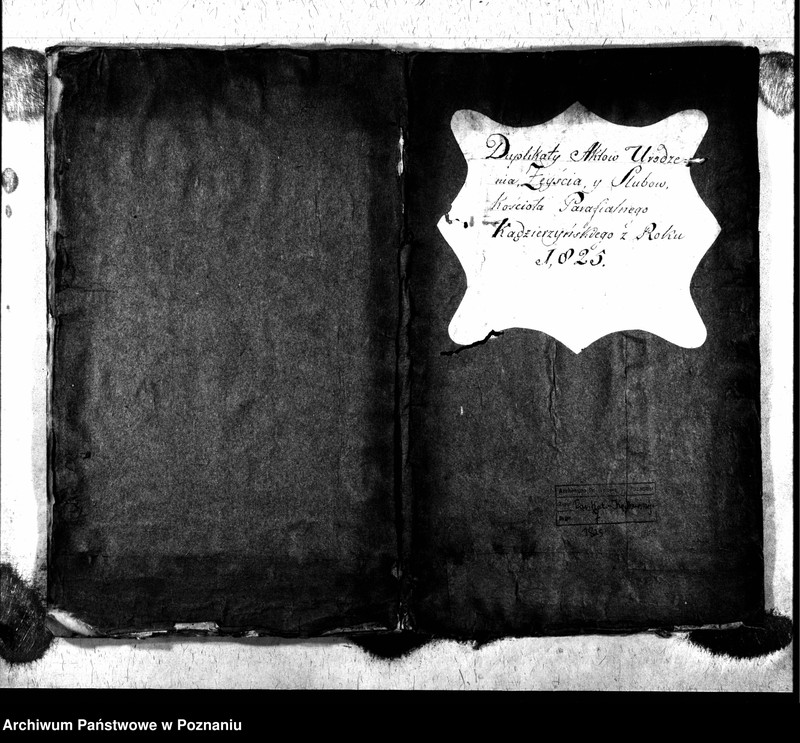 Duplikaty Aktow Urodze-
nia, Zeyścia, y Slubow,
Kościoła Parafialnego
Kądzierzyńskiego z Roku
1,825.
Archiwum Państwowe w Poznaniu